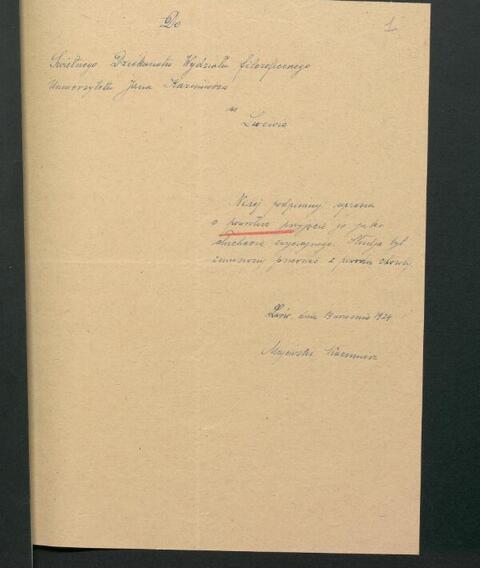 1
Do
Świetnego Dziekanatu Wydziału filozoficznego
Uniwersytetu Jana Kazimierza
we
Lwowie
Niżej podpisany uprasza
o powtórne przyjęcie go jako
słuchacza zwyczajnego. Studja był
zmuszony przerwać z powodu choroby.
Lwów, dnia 19 września 1924
Majewski Kazimierz